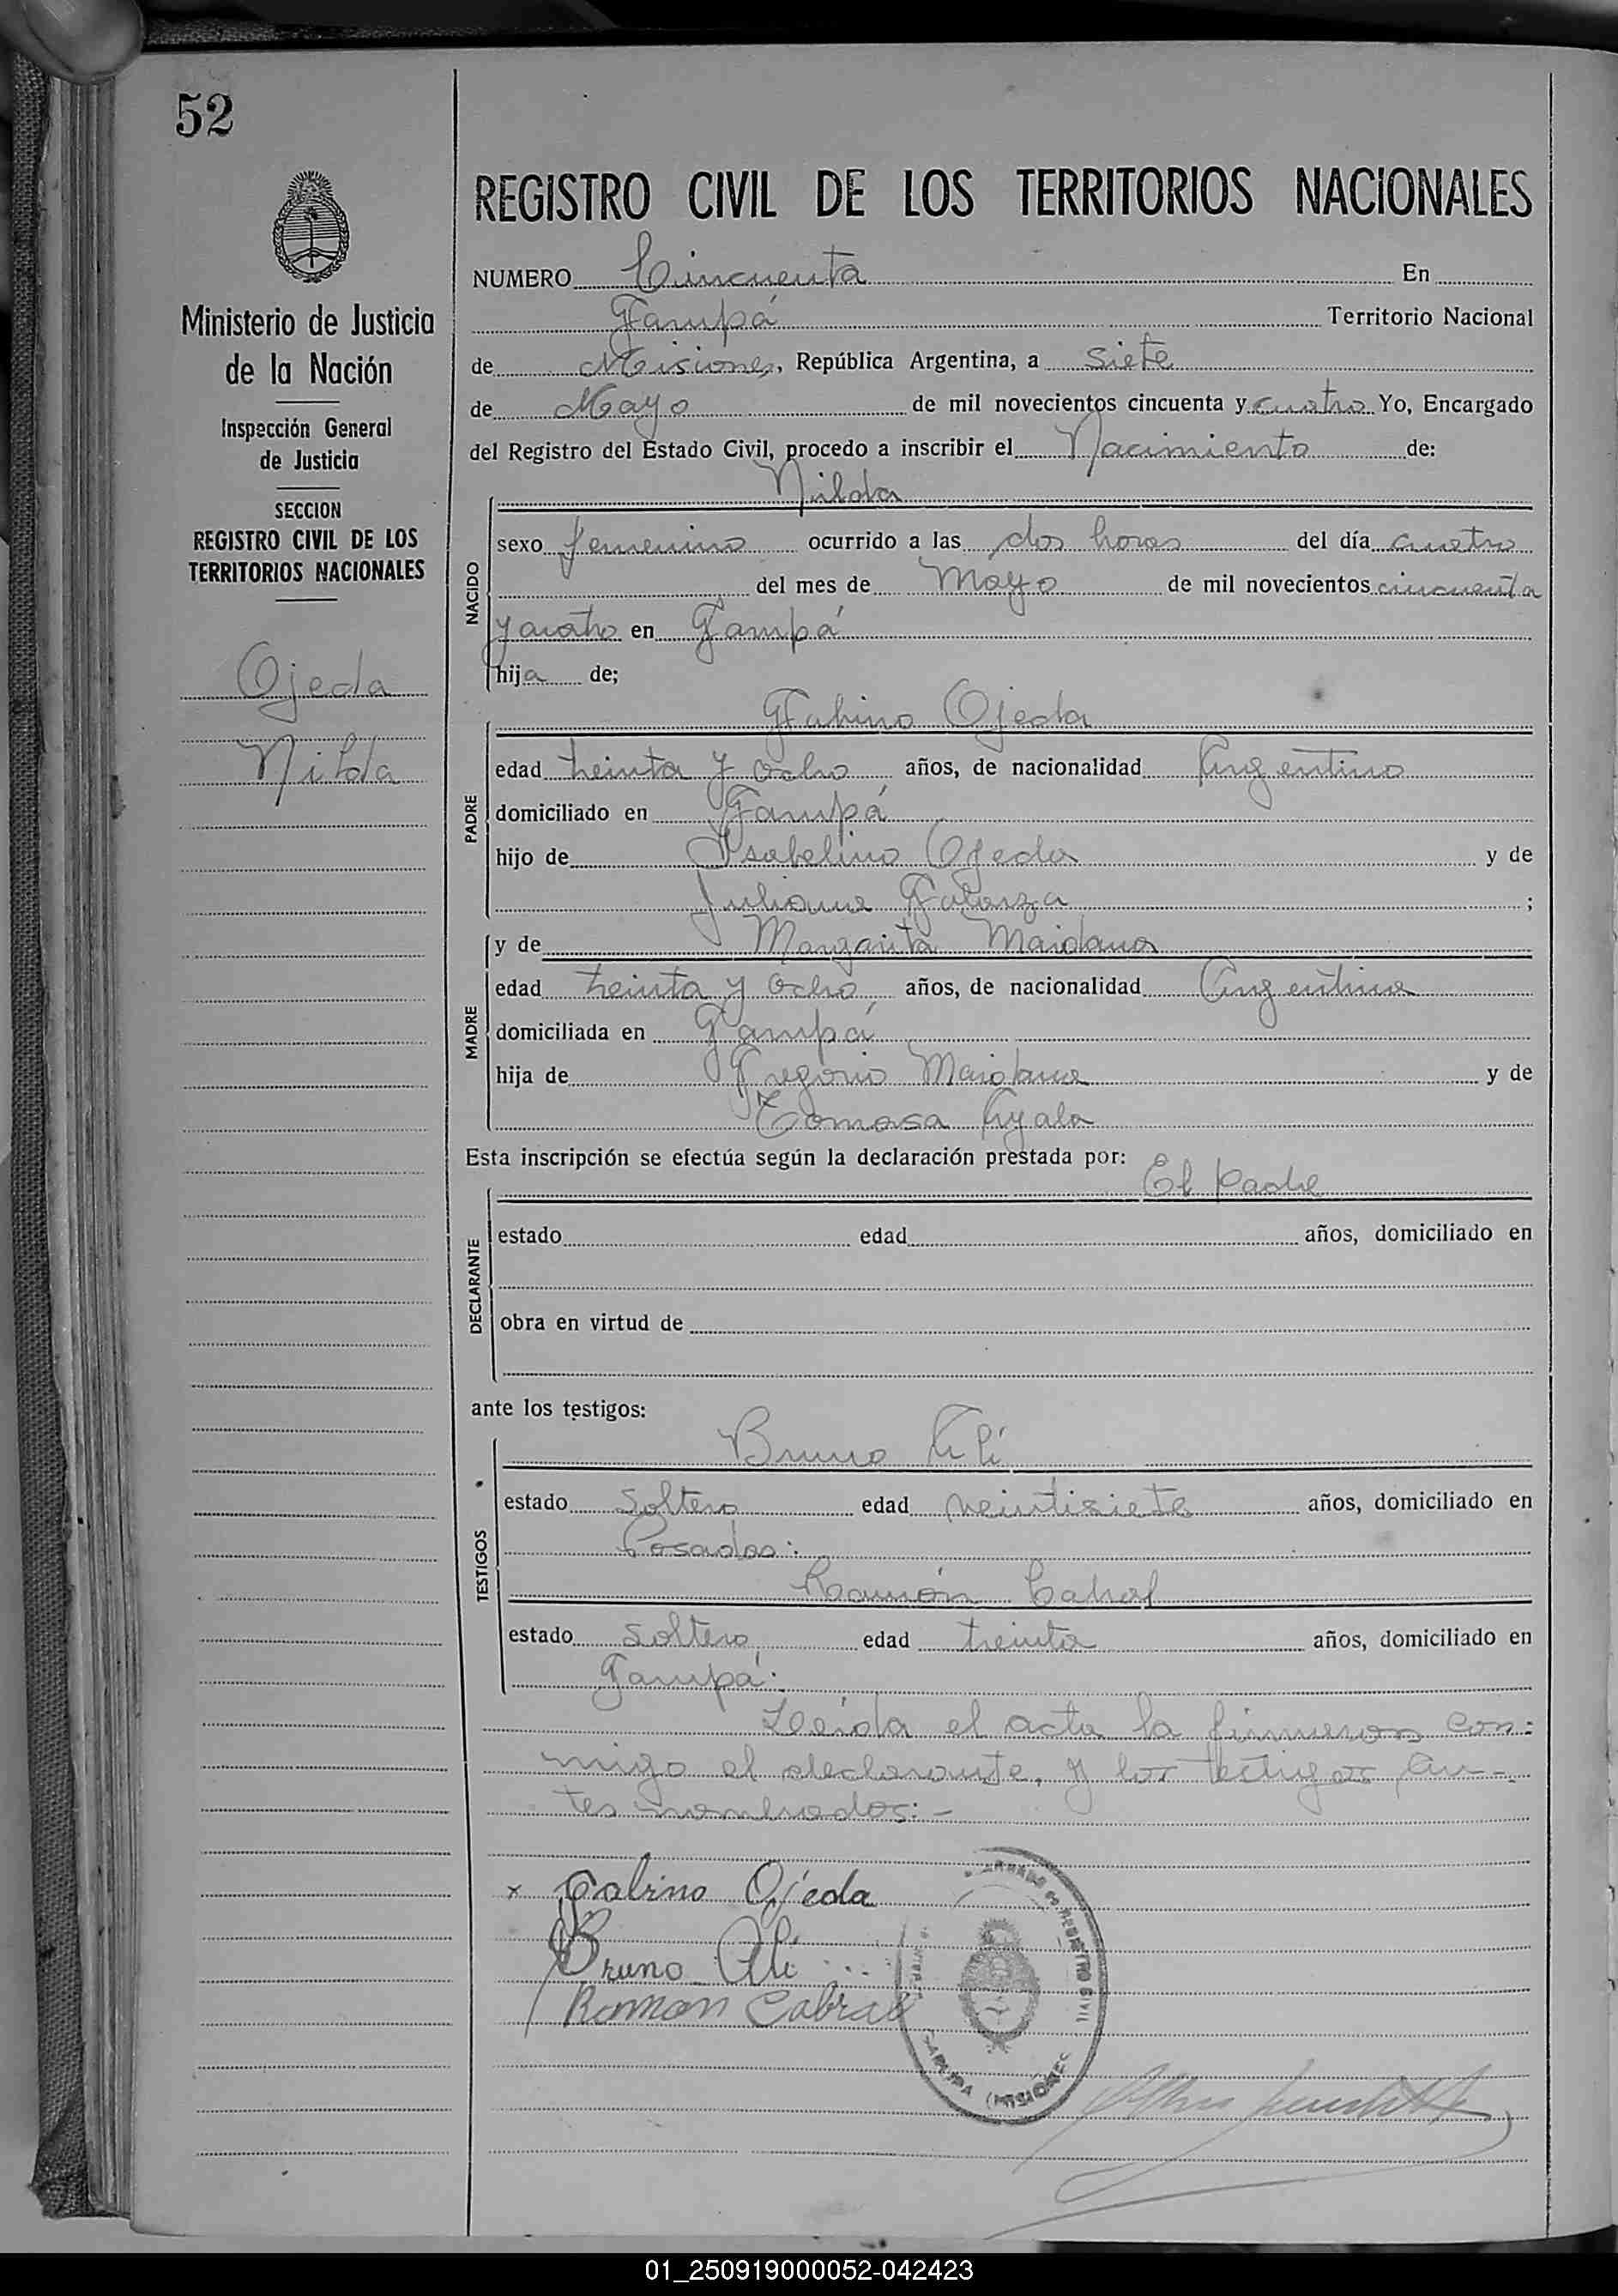 52
Ministerio de Justicia
de la Nación
Inspección General
de Justicia
SECCION
REGISTRO CIVIL DE LOS
TERRITORIOS NACIONALES
Ojeda
Nilda
REGISTRO CIVIL DE LOS TERRITORIOS NACIONALES
NUMERO Cincuenta En
Garupá Territorio Nacional
de Misiones, República Argentina, a siete
de Mayo de mil novecientos cincuenta y cuatro Yo, Encargado
del Registro del Estado Civil, procedo a inscribir el Nacimiento de:
NACIDO
Nilda
sexo femenino ocurrido a las dos horas del día cuatro
del mes de Mayo de mil novecientos cincuenta
y cuatro en Garupá
hija de;
PADRE
Gabino Ojeda
edad treinta y ocho años, de nacionalidad Argentino
domiciliado en Garupá
hijo de Isabelino Ojeda y de
Juliana Galarza ;
MADRE
y de Margarita Maidana
edad treinta y ocho años, de nacionalidad Argentina
domiciliada en Garupá
hija de Gregorio Maidana y de
Tomasa Ayala
Esta inscripción se efectúa según la declaración prestada por:
DECLARANTE
El padre
estado edad años, domiciliado en
obra en virtud de
ante los testigos:
TESTIGOS
Bruno Alí
estado soltero edad veintisiete años, domiciliado en
Posadas:
Ramón Cabral
estado soltero edad treinta años, domiciliado en
Garupá:
Leída el acta la firmaron con-
migo el declarante, y los testigos an-
tes nombrados:-
x Gabino Ojeda
Bruno Alí
Ramon Cabral
REGISTRO CIVIL
GARUPA (MISIONES)
01_250919000052-042423